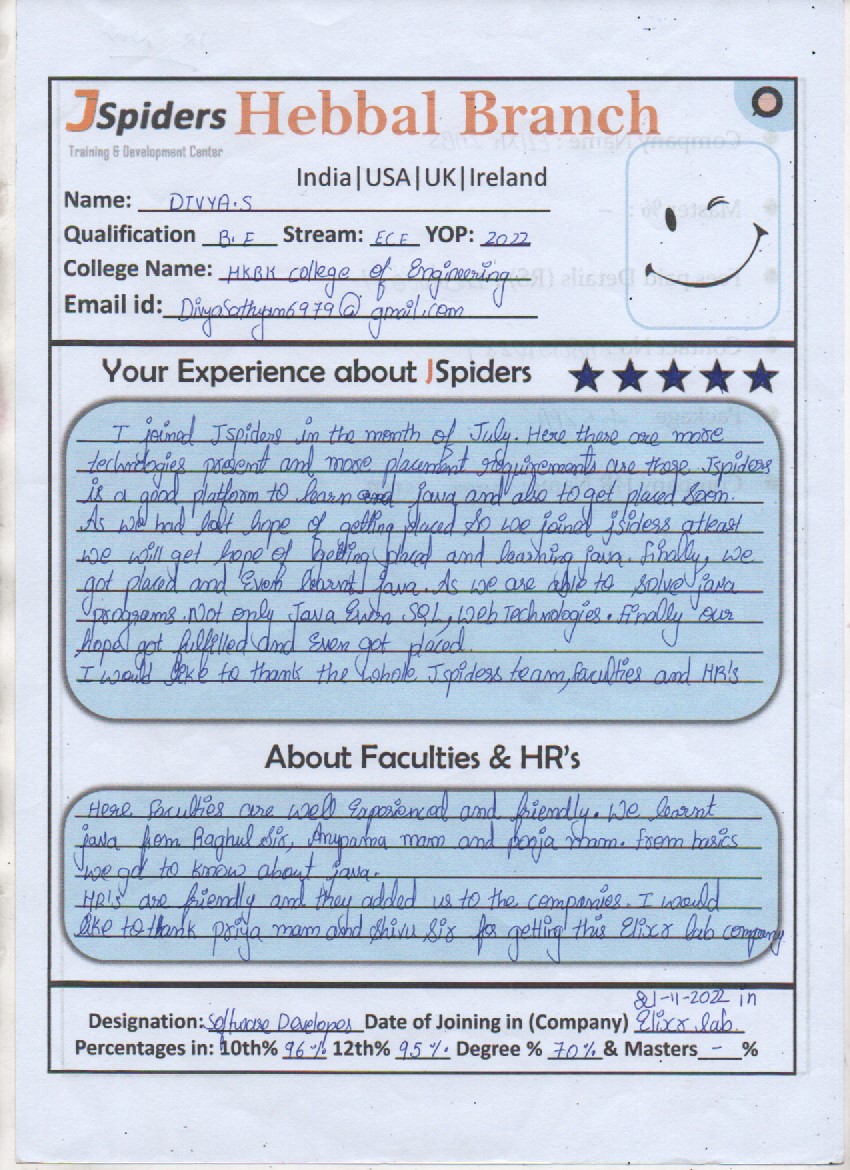 JSpiders Hebbal Branch
Training & Development Center
India|USA|UK|Ireland
Name: DIVYA.S
Qualification B.E Stream: ECE YOP: 2022
College Name: HKBK College of Engineering
Email id: Divyasathyam6979@gmail.com
Your Experience about JSpiders
I joined Jspiders in the month of July. Here there are more
technologies present and more placement requirements are there Jspiders
is a good platform to learn and java and also to get placed soon.
As we had lost hope of getting placed So we joined jsiders atleast
we will get hope of getting placed and learning java. finally, we
got placed and Even learnt java. As we are able to solve java
programs. Not only Java Even SQL, Web Technologies. finally our
hope got fulfilled and Even got placed.
I would like to thank the whole Jspiders team, faculties and HR's
About Faculties & HR's
Here faculties are well Experienced and friendly. We learnt
java from Raghul Sir, Anupama mam and pooja mam. from basics
we got to know about java.
HR's are friendly and they added us to the companies. I would
like to thank priya mam and Shivu Sir for getting this Elixr lab company
21-11-2022 in
Designation: Software Developer Date of Joining in (Company) Elixr lab.
Percentages in: 10th% 96% 12th% 95% Degree % 70% & Masters - %